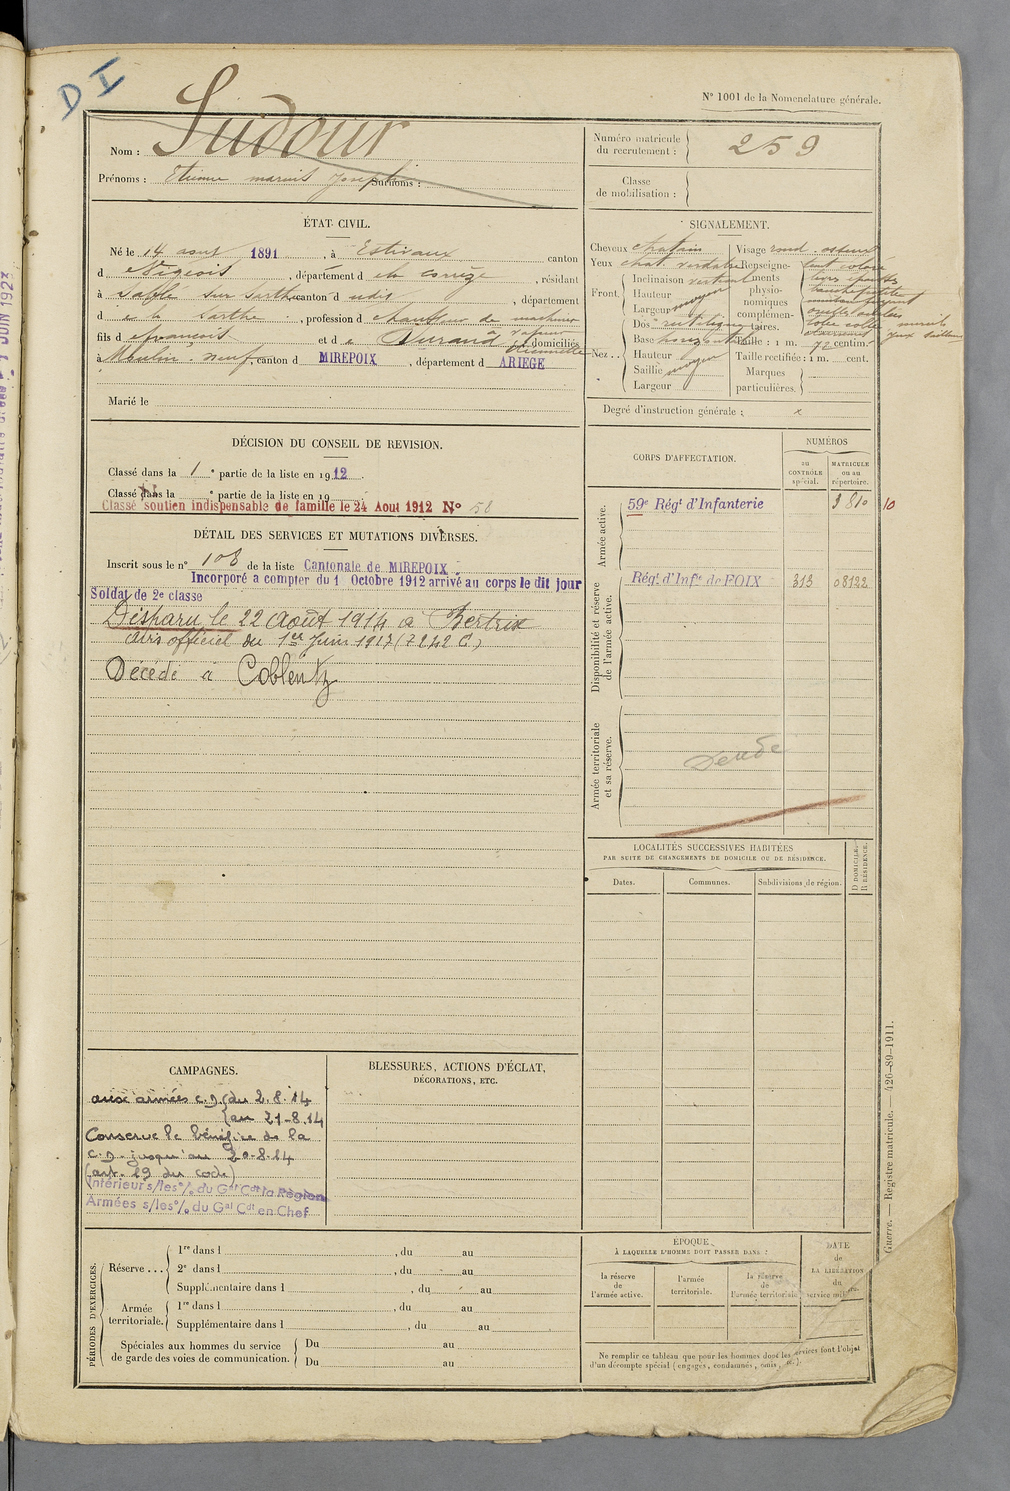 D I
N° 1001 de la Nomenclature générale.
Nom : Sudour
Prénoms : Etienne marius Joseph Surnoms :
Numéro matricule du recrutement : 259
Classe de mobilisation :
ÉTAT CIVIL.
Né le 14 aout 1891, à Estivaux canton
d Vigeois, département d e la corrèze, résidant
à Sablé sur Sarthe canton d udis, département
d e la Sarthe, profession d chauffeur de machines à vapeur
fils d e francois et d e Durand domiciliés
à Moulin-neuf, canton d MIREPOIX, département d ARIEGE
Marié le
SIGNALEMENT.
Cheveux chatain Visage rond
Yeux chat. verdatre Renseignements physionomiques complémentaires.
Front. Inclinaison vertical
Hauteur moyen
Largeur
Nez.. Dos rectiligne
Base horizontale
Hauteur moyen
Saillie
Largeur
Taille : 1 m. 72 centim.
Taille rectifiée : 1 m. cent.
Marques particulières.
Degré d'instruction générale : x
DÉCISION DU CONSEIL DE REVISION.
Classé dans la 1e partie de la liste en 1912.
Classé dans la e partie de la liste en 19
Classé soutien indispensable de famille le 24 Aout 1912 N° 58
DÉTAIL DES SERVICES ET MUTATIONS DIVERSES.
Inscrit sous le n° 108 de la liste Cantonale de MIREPOIX
Incorporé a compter du 1 Octobre 1912 arrivé au corps le dit jour
Soldat de 2e classe
Disparu le 22 Août 1914 à Bertrix
avis officiel du 1er Juin 1917 (7242 C)
Décédé à Coblentz
CORPS D'AFFECTATION.
NUMÉROS
au CONTRÔLE spécial.
MATRICULE ou au répertoire.
Armée active.
59e Régt d'Infanterie 9810 10
Disponibilité et réserve de l'armée active.
Régt d'Infie de FOIX 313 08122
Armée territoriale et sa réserve.
LOCALITÉS SUCCESSIVES HABITÉES
PAR SUITE DE CHANGEMENTS DE DOMICILE OU DE RÉSIDENCE.
Dates.
Communes.
Subdivisions de région.
D DOMICILE.
R RÉSIDENCE.
CAMPAGNES.
aux armées c.D. (du 2.8.14
(au 21-8.14
Conserve le bénéfice de la
C.D. jusqu'au 20-8-14
(art. 19 du code)
Intérieur s/les % du Gal Cdt la Région
Armées s/les % du Gal Ct en Chef
BLESSURES, ACTIONS D'ÉCLAT,
DÉCORATIONS, ETC.
PÉRIODES D'EXERCICES.
Réserve ...
1re dans l , du au
2e dans l , du au
Supplémentaire dans l , du au
Armée territoriale.
1re dans l , du au
Supplémentaire dans l , du au
Spéciales aux hommes du service de garde des voies de communication.
Du au
Du au
ÉPOQUE
À LAQUELLE L'HOMME DOIT PASSER DANS :
la réserve de l'armée active.
l'armée territoriale.
la réserve de l'armée territoriale
DATE de LA LIBÉRATION du service militaire.
Ne remplir ce tableau que pour les hommes dont les services font l'objet
d'un décompte spécial (engagés, condamnés, omis, etc.).
Guerre. — Registre matricule. — 426-89-1911.